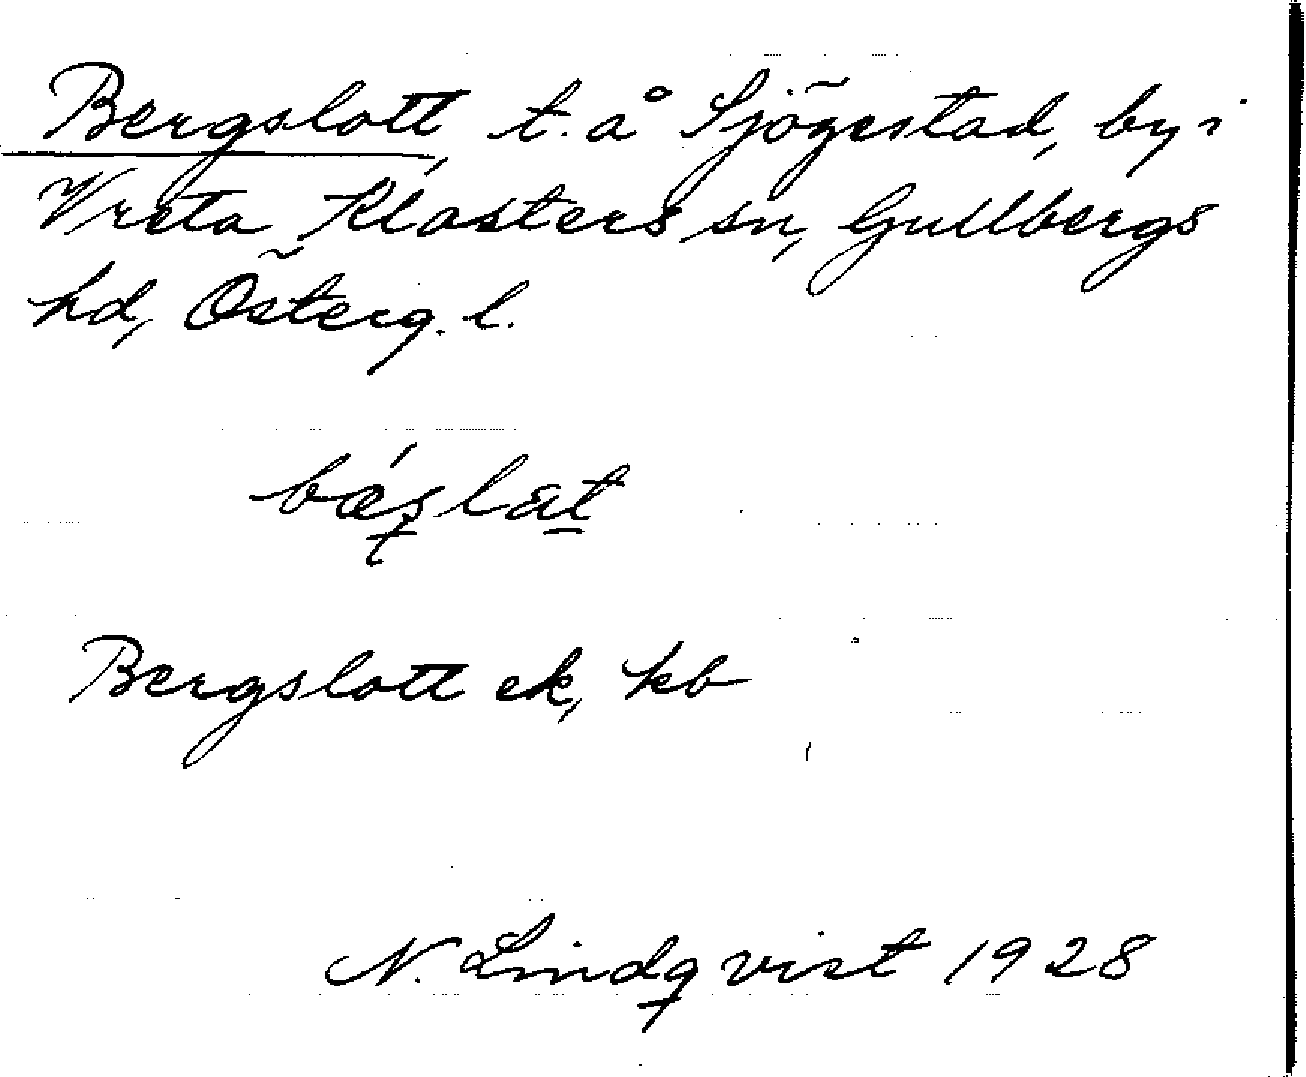 Bergslott, t. å Sjögestad, by i
Vreta Klosters sn, Gullbergs
hd, Österg. l.
bǽslat
Bergslott ek, kb
N. Lindqvist 1928